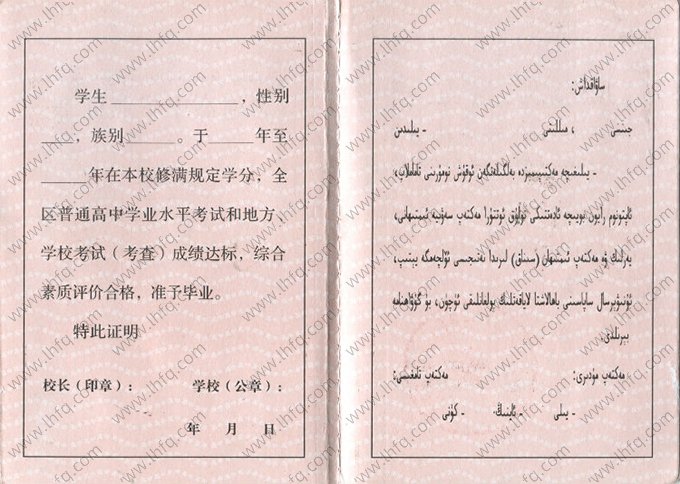 学生______________，性别
____，族别______。于_____年至
_____年在本校修满规定学分，全
区普通高中学业水平考试和地方、
学校考试（考查）成绩达标，综合
素质评价合格，准予毕业。
特此证明
校长（印章）： 学校（公章）：
年 月 日
ساۋاقداش:
جىنسى ، مىللىتى - يىلىدىن
- يىلىغىچە مەكتىپىمىزدە بەلگىلەنگەن ئوقۇش نومۇرىنى تاماملاپ،
ئاپتونوم رايون بويىچە ئادەتتىكى تولۇق ئوتتۇرا مەكتەپ سەۋىيە ئىمتىھانى،
يەرلىك ۋە مەكتەپ ئىمتىھان (سىناق) لىرىدا نەتىجىسى ئۆلچەمگە يېتىپ،
ئۇنىۋېرسال ساپاسىنى باھالاشتا لاياقەتلىك بولغانلىقى ئۈچۈن، بۇ گۇۋاھنامە
بېرىلدى.
مەكتەپ مۇدىرى: مەكتەپ تامغىسى:
- يىلى - ئاينىڭ - كۈنى
www.lhfq.com